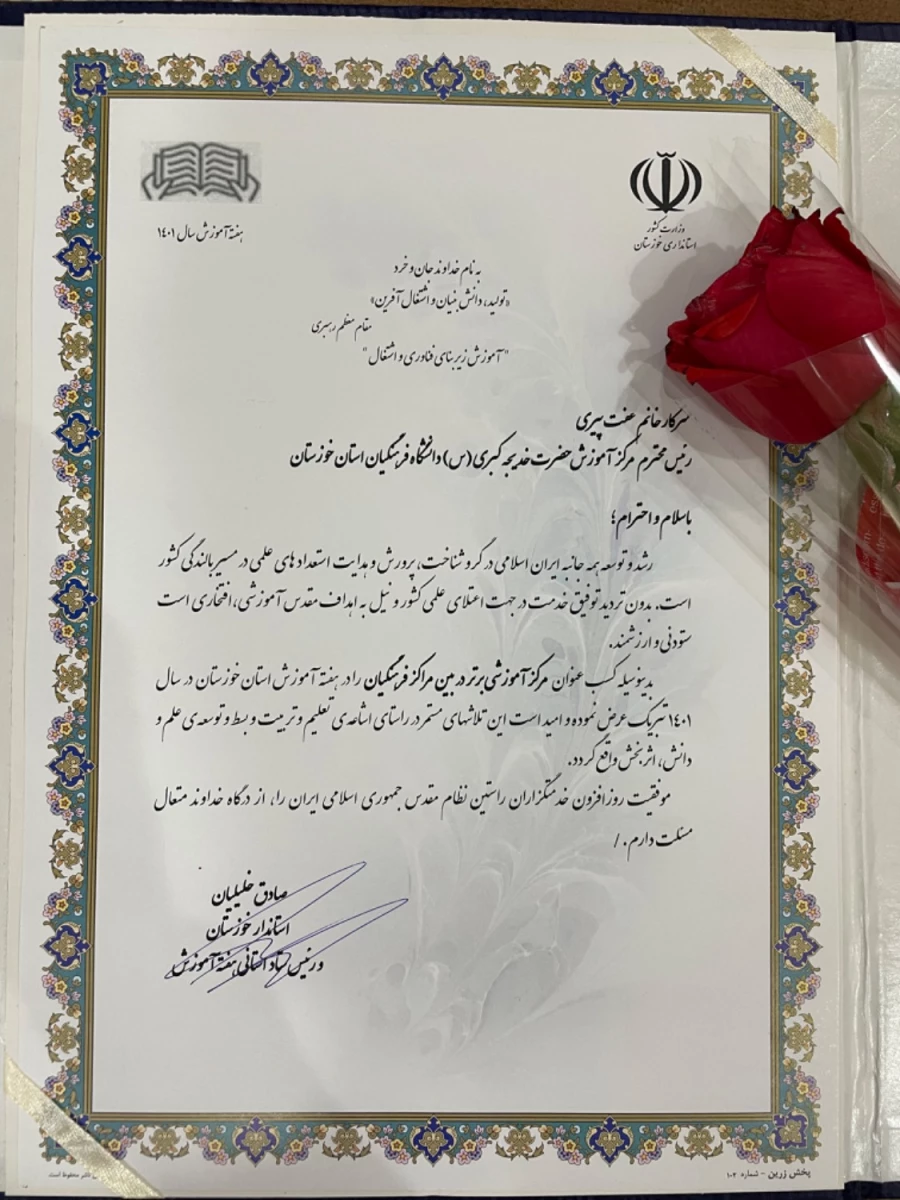 وزارت کشور
استانداری خوزستان
هفته آموزش سال ۱۴۰۱
به نام خداوند جان و خرد
«تولید، دانش بنیان و اشتغال آفرین»
مقام معظم رهبری
"آموزش زیربنای فناوری و اشتغال"
سرکار خانم عفت پیری
رئیس محترم مرکز آموزش حضرت خدیجه کبری (س) دانشگاه فرهنگیان استان خوزستان
باسلام و احترام؛
رشد و توسعه همه جانبه ایران اسلامی در گرو شناخت، پرورش و هدایت استعدادهای علمی در مسیر بالندگی کشور
است. بدون تردید توفیق خدمت در جهت اعتلای علمی کشور و نیل به اهداف مقدس آموزشی، افتخاری است
ستودنی و ارزشمند.
بدینوسیله کسب عنوان مرکز آموزشی برتر در بین مراکز فرهنگیان را در هفته آموزش استان خوزستان در سال
۱۴۰۱ تبریک عرض نموده و امید است این تلاشهای مستمر در راستای اشاعه‌ی تعلیم و تربیت و بسط و توسعه‌ی علم و
دانش، اثربخش واقع گردد.
موفقیت روزافزون خدمتگزاران راستین نظام مقدس جمهوری اسلامی ایران را، از درگاه خداوند متعال
مسئلت دارم. /
صادق خلیلیان
استاندار خوزستان
و رئیس ستاد استانی هفته آموزش
پخش زرین - شماره ۱۰۲
محفوظ است.